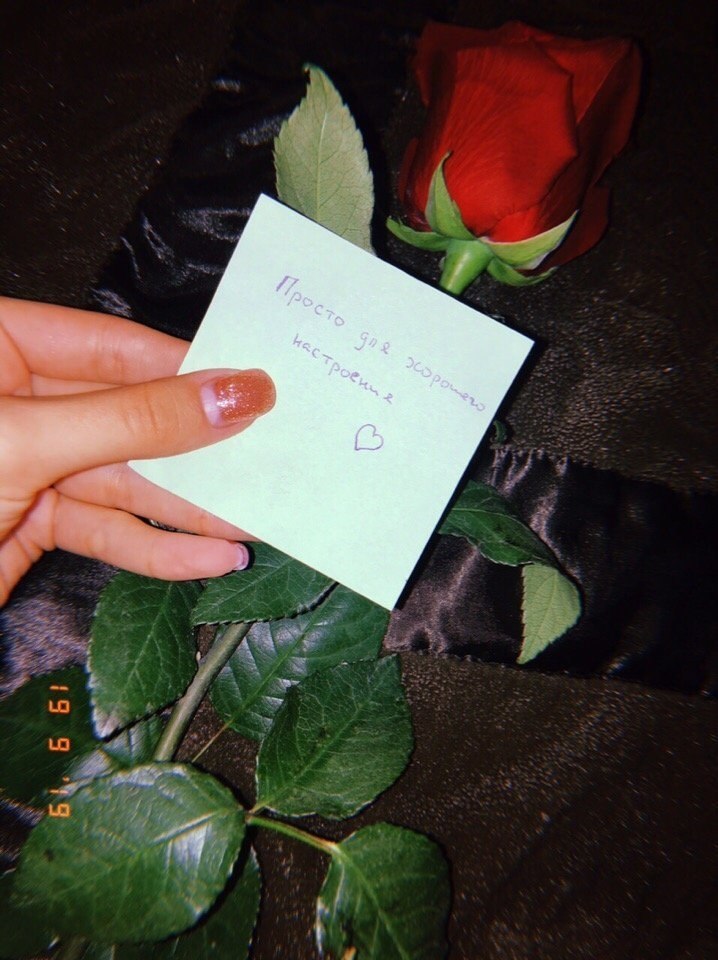 Просто для хорошего
настроения
♡
19 9 '19